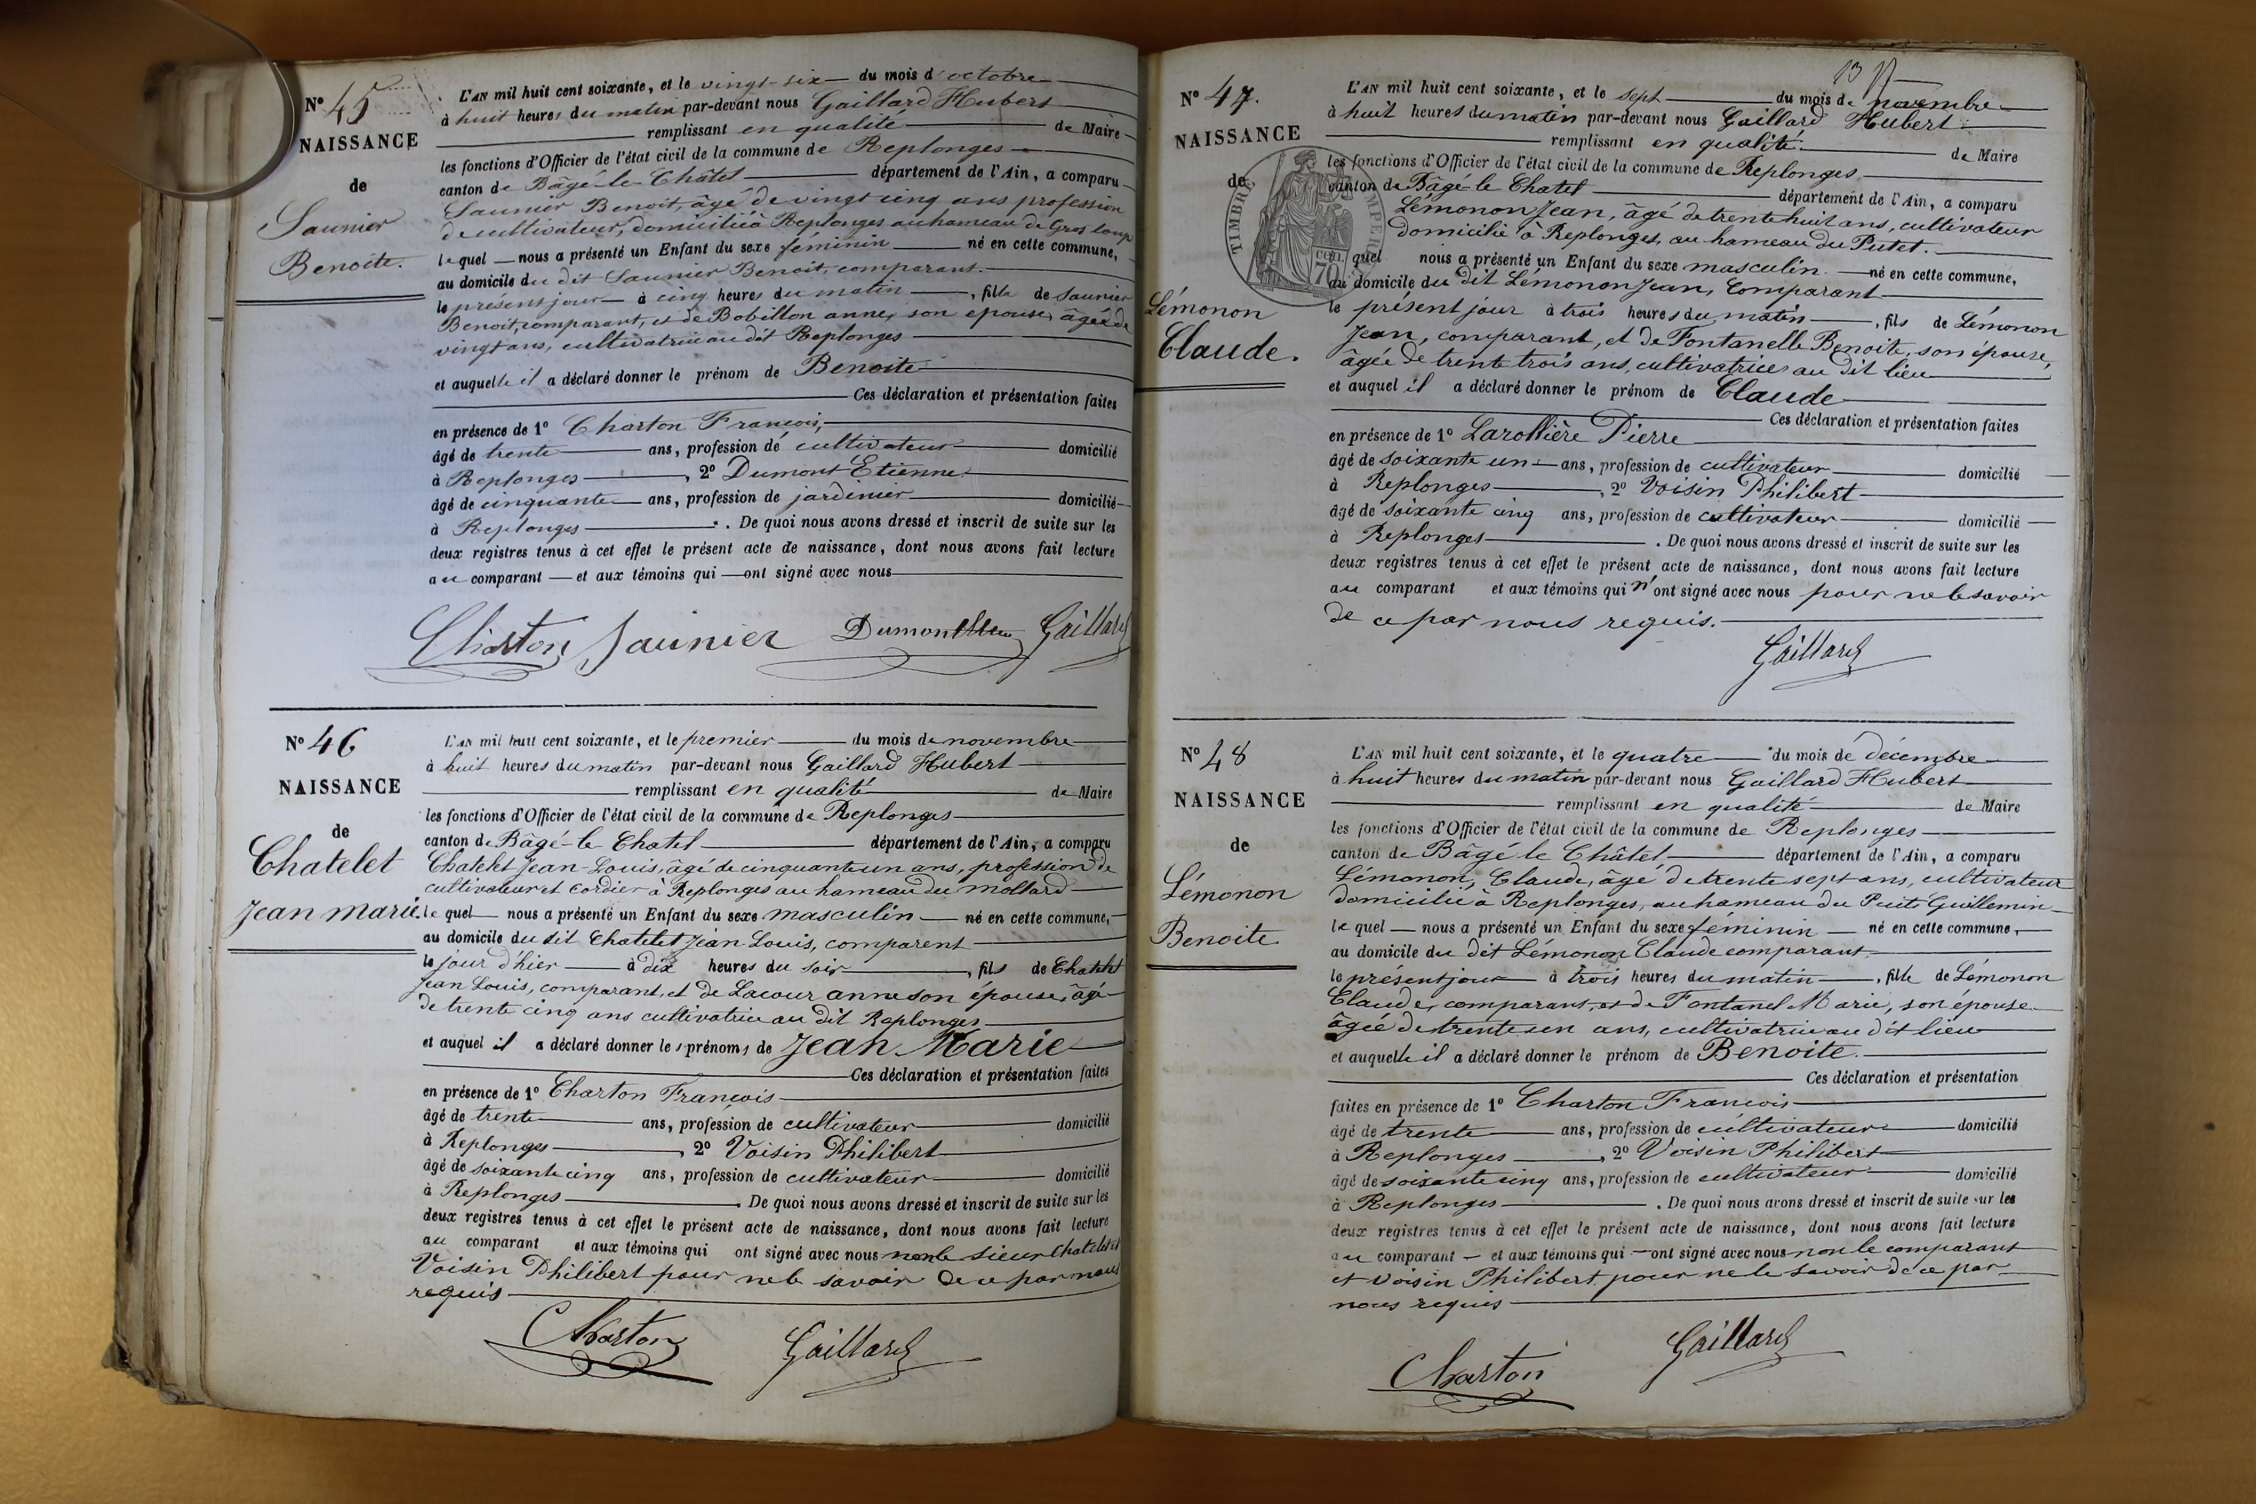 N° 45
NAISSANCE
de
Saunier
Benoite.
L'AN mil huit cent soixante, et le vingt-six du mois d'octobre
à huit heures du matin par-devant nous Gaillard Hubert
remplissant en qualité de Maire
les fonctions d'Officier de l'état civil de la commune de Replonges
canton de Bâgé-le-Châtel département de l'Ain, a comparu
Saunier Benoit, âgé de vingt cinq ans profession
de cultivateur, domicilié à Replonges au hameau de Gros loup
lequel nous a présenté un Enfant du sexe féminin né en cette commune,
au domicile du dit Saunier Benoit, comparant.
le présent jour à cinq heures du matin, fille de Saunier
Benoit, comparant, et de Bobillon anne, son epouse, âgée de
vingt ans, cultivatrice au dit Replonges
et auquelle il a déclaré donner le prénom de Benoite
Ces déclaration et présentation faites
en présence de 1° Charton François,
âgé de trente ans, profession de cultivateur domicilié
à Replonges, 2° Dumont Etienne
âgé de cinquante ans, profession de jardinier domicilié
à Replonges. De quoi nous avons dressé et inscrit de suite sur les
deux registres tenus à cet effet le présent acte de naissance, dont nous avons fait lecture
au comparant et aux témoins qui ont signé avec nous
Charton Saunier Dumont Gaillard
N° 46
NAISSANCE
de
Chatelet
Jean marie.
L'AN mil huit cent soixante, et le premier du mois de novembre
à huit heures du matin par-devant nous Gaillard Hubert
remplissant en qualité de Maire
les fonctions d'Officier de l'état civil de la commune de Replonges
canton de Bâgé-le-Chatel département de l'Ain, a comparu
Chatelet Jean-Louis, âgé de cinquante un ans, profession de
cultivateur et cordier à Replonges au hameau du mollard
lequel nous a présenté un Enfant du sexe masculin né en cette commune,
au domicile du dit Chatelet Jean Louis, comparent
le jour d'hier à dix heures du soir, fils de Chatelet
Jean Louis, comparant, et de Lacour anne son épouse, âgée
de trente cinq ans cultivatrice au dit Replonges
et auquel il a déclaré donner les prénoms de Jean Marie
Ces déclaration et présentation faites
en présence de 1° Charton François
âgé de trente ans, profession de cultivateur domicilié
à Replonges, 2° Voisin Philibert
âgé de soixante cinq ans, profession de cultivateur domicilié
à Replonges. De quoi nous avons dressé et inscrit de suite sur les
deux registres tenus à cet effet le présent acte de naissance, dont nous avons fait lecture
au comparant et aux témoins qui ont signé avec nous non le sieur Chatelet et
Voisin Philibert pour ne le savoir de ce par nous
requis
Charton Gaillard
13
N° 47.
NAISSANCE
de
Lémonon
Claude.
TIMBRE IMPERIAL
70 cen.
L'AN mil huit cent soixante, et le sept du mois de novembre
à huit heures du matin par-devant nous Gaillard Hubert
remplissant en qualité de Maire
les fonctions d'Officier de l'état civil de la commune de Replonges
canton de Bâgé-le Chatel département de l'Ain, a comparu
Lémonon Jean, âgé de trente huit ans, cultivateur
domicilié à Replonges, au hameau du Putet.
lequel nous a présenté un Enfant du sexe masculin né en cette commune,
au domicile du dit Lémonon Jean, Comparant
le présent jour à trois heures du matin, fils de Lémonon
Jean, comparant, et de Fontanelle Benoite, son épouse,
âgée de trente trois ans, cultivatrice au dit lieu
et auquel il a déclaré donner le prénom de Claude
Ces déclaration et présentation faites
en présence de 1° Larollière Pierre
âgé de soixante un ans, profession de cultivateur domicilié
à Replonges, 2° Voisin Philibert
âgé de soixante cinq ans, profession de cultivateur domicilié
à Replonges. De quoi nous avons dressé et inscrit de suite sur les
deux registres tenus à cet effet le présent acte de naissance, dont nous avons fait lecture
au comparant et aux témoins qui n'ont signé avec nous pour ne le savoir
de ce par nous requis.
Gaillard
N° 48
NAISSANCE
de
Lémonon
Benoite
L'AN mil huit cent soixante, et le quatre du mois de décembre
à huit heures du matin par-devant nous Gaillard Hubert
remplissant en qualité de Maire
les fonctions d'Officier de l'état civil de la commune de Replonges
canton de Bâgé le Châtel département de l'Ain, a comparu
Lémonon, Claude, âgé de trente sept ans, cultivateur
domicilié à Replonges, au hameau du Puits Guillemin
lequel nous a présenté un Enfant du sexe féminin né en cette commune,
au domicile du dit Lémonon Claude comparant
le présent jour à trois heures du matin, fille de Lémonon
Claude, comparant, et de Fontanel Marie, son épouse
âgée de trente un ans, cultivatrice au dit lieu
et auquelle il a déclaré donner le prénom de Benoite.
Ces déclaration et présentation
faites en présence de 1° Charton François
âgé de trente ans, profession de cultivateur domicilié
à Replonges, 2° Voisin Philibert
âgé de soixante cinq ans, profession de cultivateur domicilié
à Replonges. De quoi nous avons dressé et inscrit de suite sur les
deux registres tenus à cet effet le présent acte de naissance, dont nous avons fait lecture
au comparant et aux témoins qui ont signé avec nous non le comparant
et Voisin Philibert pour ne le savoir de ce par
nous requis
Charton Gaillard